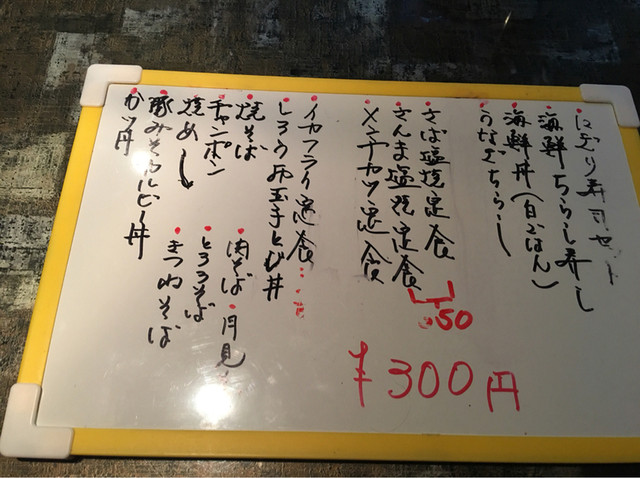 にぎり寿司セット
海鮮ちらし寿し
海鮮丼(白ごはん)
うなぎちらし
さば塩焼定食
さんま塩焼定食
50
メンチカツ定食
¥300円
イカフライ定食
しろう丼玉子とじ丼
焼そば
チャンポン
焼めし
豚みそカルビー丼
カツ丼
肉そば・月見
とろろそば
きつねそば